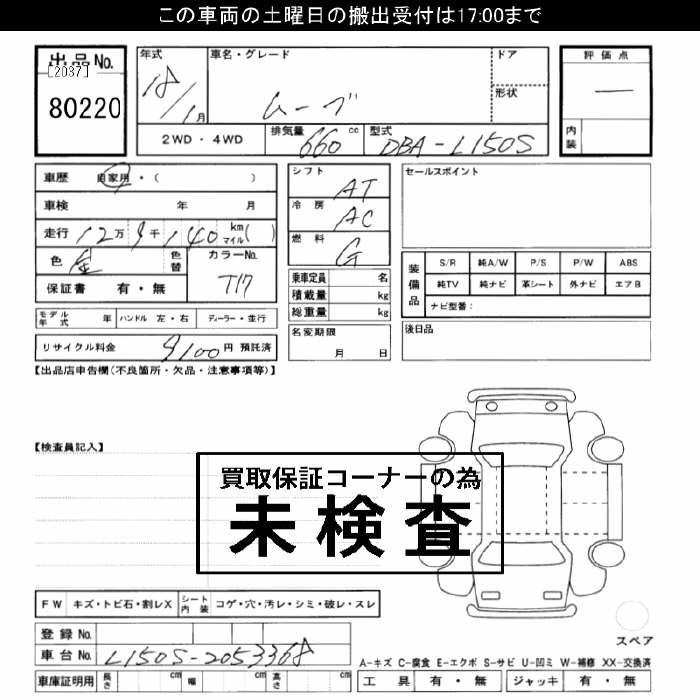 この車両の土曜日の搬出受付は17:00まで
出品No.
[2037]
80220
年式
18/1月
車名・グレード
ムーブ
ドア
形状
評価点
—
内装
2WD・4WD
排気量
660cc
型式
DBA-L150S
車歴 自家用・( )
車検 年 月
走行 12万9千140 km マイル( )
色 金 色替
カラーNo.
T17
保証書 有・無
シフト
AT
冷房
AC
燃料
G
乗車定員 名
積載量 kg
総重量 kg
セールスポイント
装備品
S/R 純A/W P/S P/W ABS
純TV 純ナビ 革シート 外ナビ エアB
ナビ型番:
モデル年式 年 ハンドル 左・右 ディーラー・並行
名変期限
月 日
後日品
リサイクル料金 9100円 預託済
【出品店申告欄(不良箇所・欠品・注意事項等)】
【検査員記入】
買取保証コーナーの為
未検査
FW キズ・トビ石・割レX シート内装 コゲ・穴・汚レ・シミ・破レ・スレ
スペア
登録No.
車台No. L150S-2053368
A-キズ C-腐食 E-エクボ S-サビ U-凹ミ W-補修 XX-交換済
車庫証明用 長さ cm 幅 cm 高さ cm
工具 有・無 ジャッキ 有・無